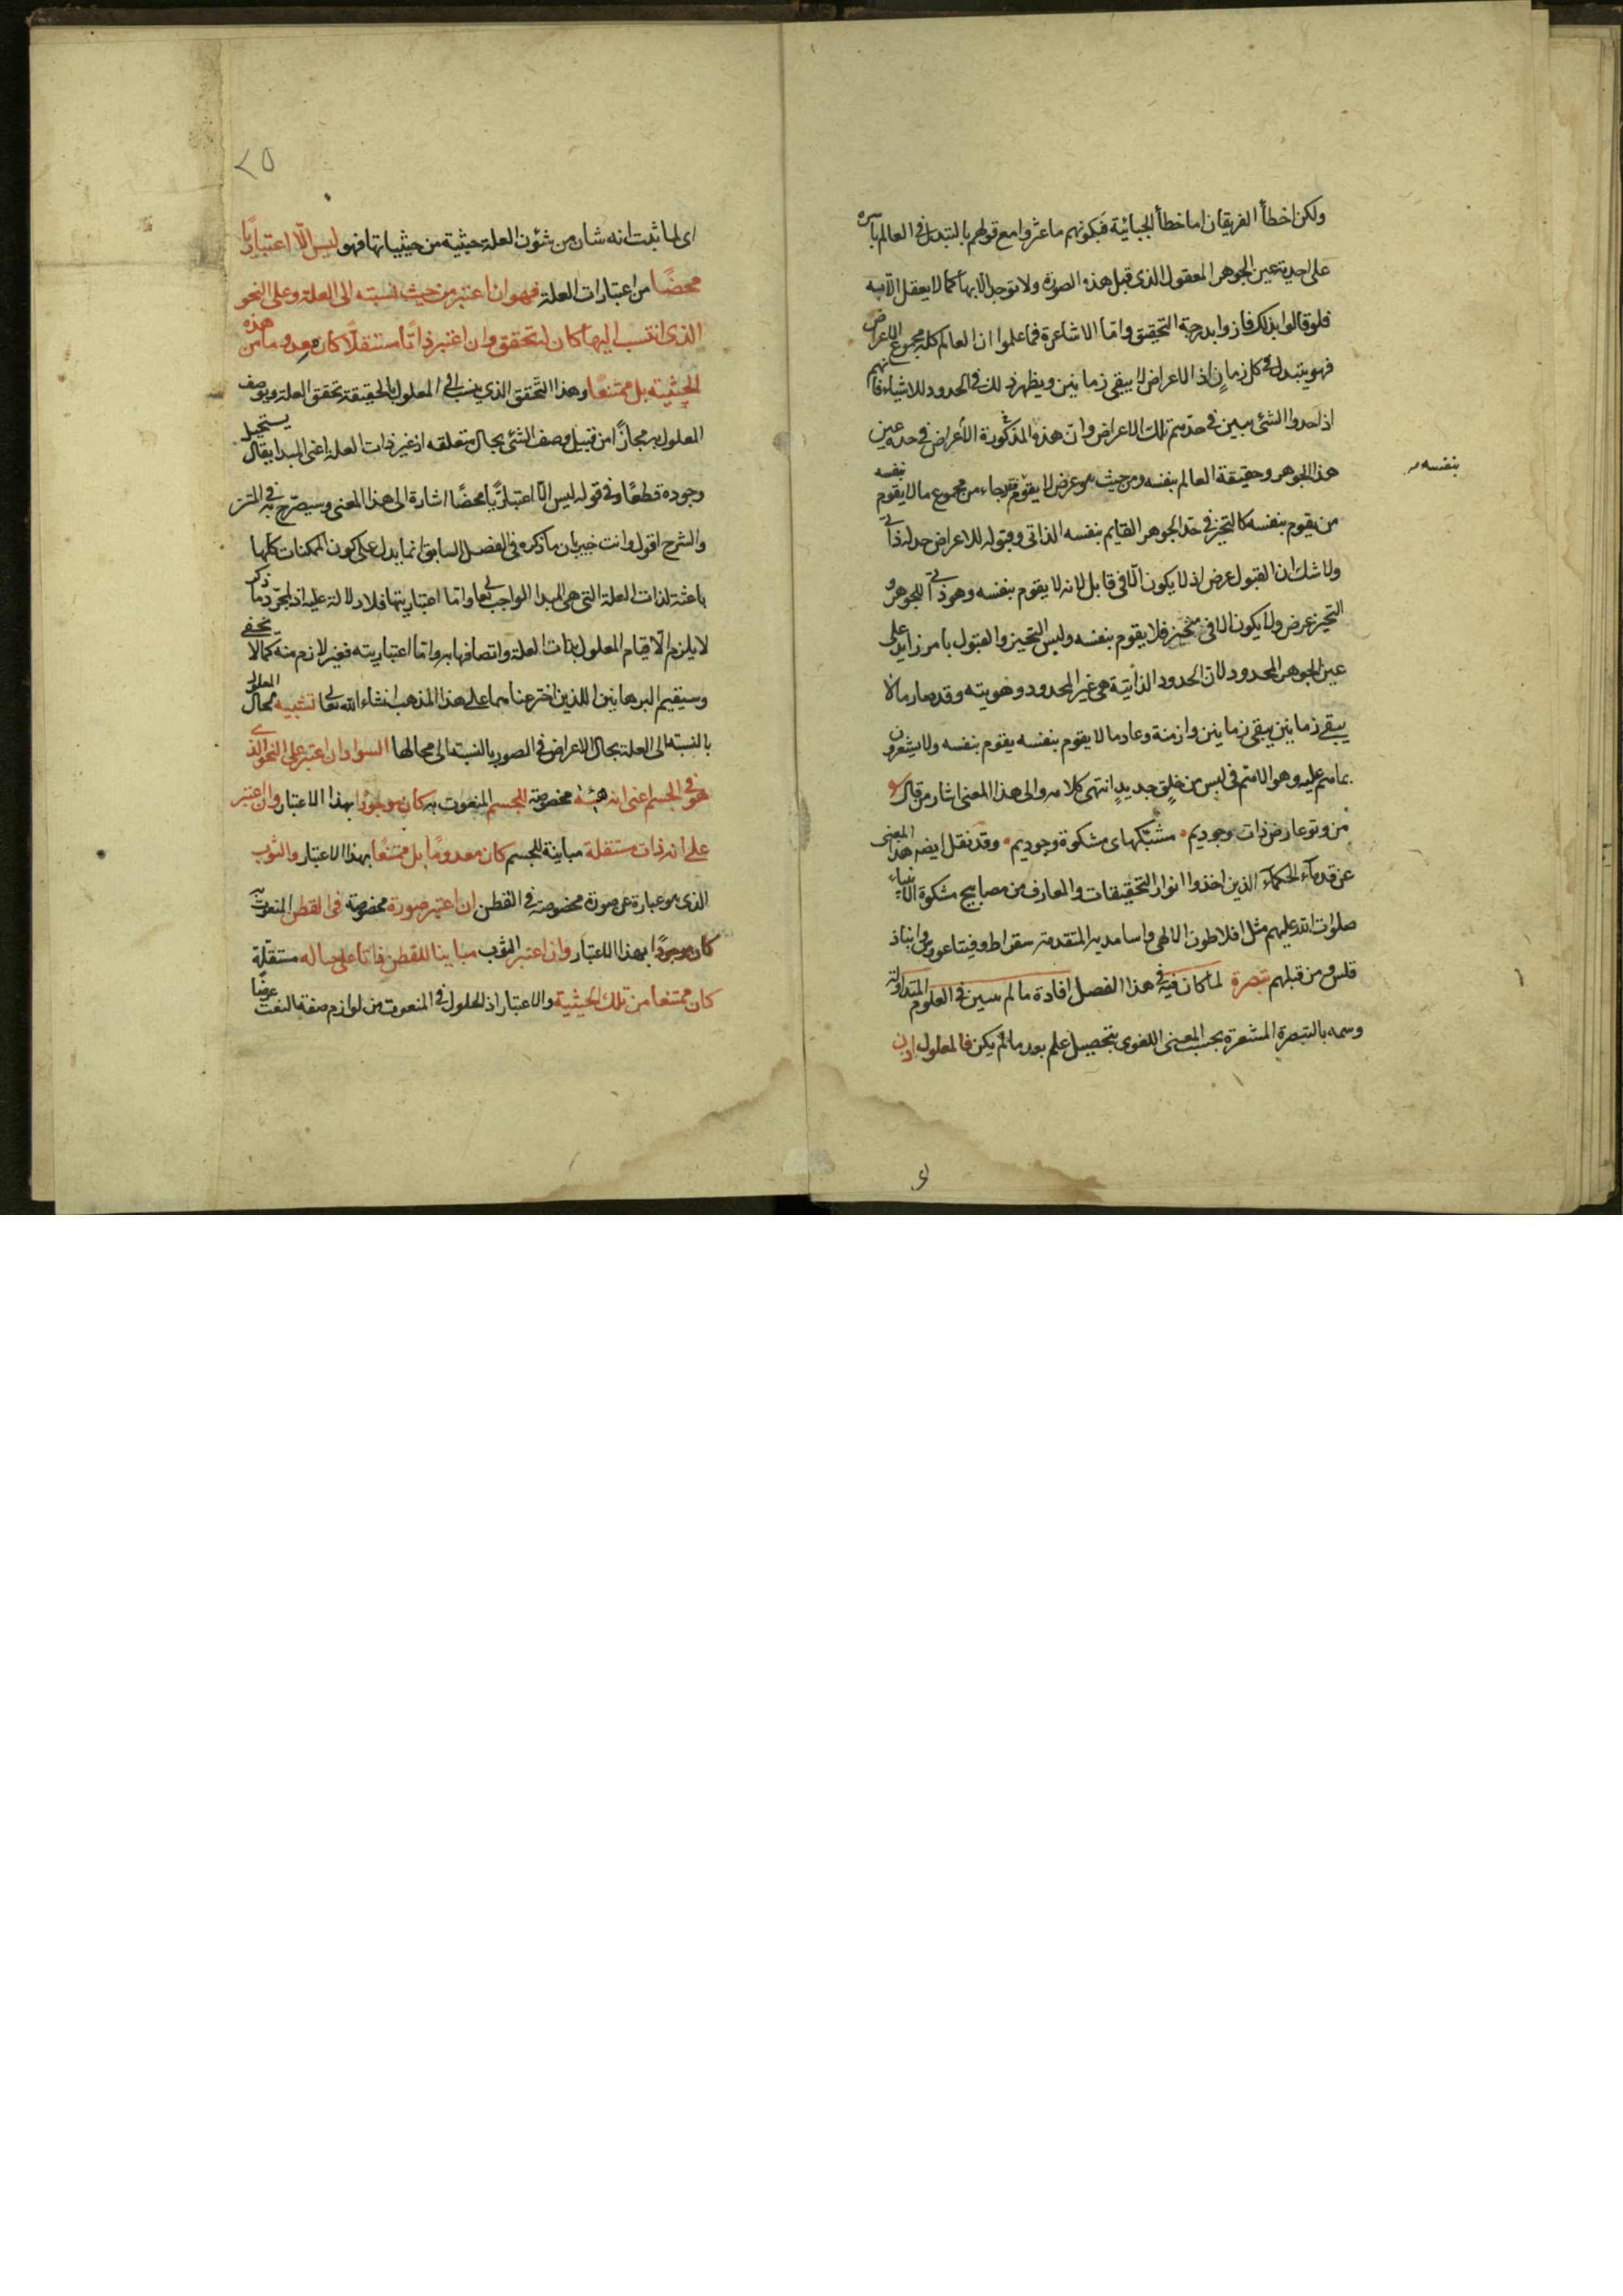 ولكن اخطأ الفريقان اما خطأ الجبائية فبكونهم ما عثروا مع قولهم بالتبدل في العالم باسره
على احدية عين الجوهر المعقول الذى قبل هذه الصورة ولا توجد الا بها كما لا يعقل الا به
فلو قالوا بذلك فازوا بدرجة التحقيق واما الاشاعرة فما علموا ان العالم كله مجموع الاعراض
فهو يتبدل في كل زمان اذ الاعراض لا يبقى زمانين ويظهر ذلك في الحدود للاشياء فانهم
اذا حدوا الشئ يبين في حدهم تلك الاعراض وان هذه المذكورة الأعراض في حده عين
هذا الجوهر وحقيقة العالم بنفسه ومن حيث هو عرض لا يقوم فقد جاء من مجموع ما لا يقوم بنفسه
بنفسه
من يقوم بنفسه كالتحيز في حد الجوهر القايم بنفسه الذاتى وقبوله للاعراض حد له ذاتي
ولا شك ان القبول عرض اذ لا يكون الا في قابل لانه لا يقوم بنفسه وهو ذاتي للجوهر و
التحيز عرض ولا يكون الا في متحيز فلا يقوم بنفسه وليس التحيز والقبول بامر زايد على
عين الجوهر المحدود لان الحدود الذاتية هى غير المحدود وهويته وقد صار ما لا
يبقى زمانين يبقى زمانين وازمنة وعاد ما لا يقوم بنفسه يقوم بنفسه ولا يشعرون
بما هم عليه وهؤلاء هم في لبس من خلق جديد انتهى كلامه والى هذا المعنى اشار من قال
من وتو عارض ذات وجوديم مشبكهاى مشكوة وجوديم وقد نقل ايضه هذا المعنى
عن قدماء الحكماء الذين اخذوا انوار التحقيقات والمعارف من مصابيح مشكوة الانبياء
صلوات الله عليهم مثل افلاطون الالهى واساتيده المتقدمة سقراط وفيثاغورس وانباذ
قلس ومن قبلهم تبصرة لما كان فيه في هذا الفصل افادة ما لم يبين في العلوم المتداولة
وسمه بالتبصرة المشعرة بحسب المعنى اللغوى بتحصيل علم بعد ما لم يكن فالمعلول اذن
٢٥
اى لما ثبت انه شان من شئون العلة حيثية من حيثياتها فهو ليس الا اعتباريا
محضًا من اعتبارات العلة فهو ان اعتبر من حيث نسبته الى العلة وعلى النحو
الذى انتسب اليها كان له تحقق وان اعتبر ذاتًا مستقلًا كان معدوما من هذه
الحيثية بل ممتنعًا وهذا التحقق الذي ينسب الى المعلول بالحقيقة تحقق العلة ويوصف
المعلول به مجازًا من قبيل وصف الشئ بحال متعلقه اذ غير ذات العلة اعنى المبدا يقال يستحيل
وجوده قطعًا وفي قوله ليس الا اعتباريًا محضًا اشارة الى هذا المعنى وسيصرح به في المتن
والشرح اقول وانت خبير بان ما ذكره في الفصل السابق انما يدل على كون الممكنات كلها
باعثة لذات العلة التي هى المبدا الواجب تعالى واما اعتباريتها فلا دلالة عليه اذ لمجرد ما ذكر
لا يلزم الا قيام المعلول بذات العلة واتصافها به واما اعتباريته فغير لازم منه كما لا يخفى
وسيقيم البرهانين اللذين اخترعناهما على هذا المذهب انشاء الله تعالى تشبيه لحال المعلول
بالنسبة الى العلة بحال الاعراض في الصور بالنسبة الى محالها السواد ان اعتبر على النحو الذى
هو في الجسم اعنى انه هيئة مخصوصة للجسم المنعوت به كان موجودًا بهذا الاعتبار وان اعتبر
على انه ذات مستقلة مباينة للجسم كان معدومًا بل ممتنعًا بهذا الاعتبار والثوب
الذى هو عبارة عن صورة مخصوصة في القطن ان اعتبر صورة مخصوصة في القطن المنعوت به
كان موجودًا بهذا الاعتبار وان اعتبر الثوب مباينا للقطن ذاتا على حياله مستقلة
كان ممتنعا من تلك الحيثية والاعتبار اذ الحلول في المنعوت من لوازم صفة النعت عرضًا